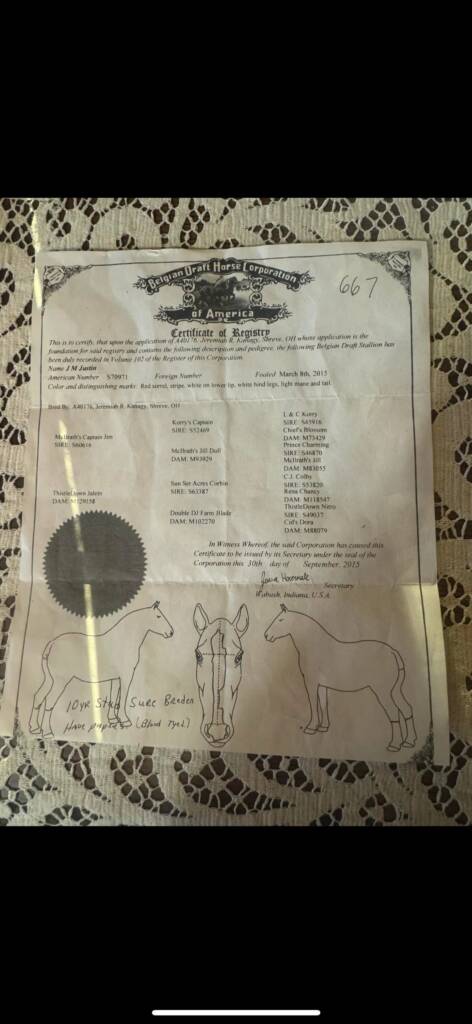 Belgian Draft Horse Corporation
of America
667
Certificate of Registry
This is to certify, that upon the application of A40176, Jeremiah R. Kanagy, Shreve, OH whose application is the
foundation for said registry and contains the following description and pedigree, the following Belgian Draft Stallion has
been duly recorded in Volume 102 of the Register of this Corporation.
Name J M Justin
American Number S70971 Foreign Number Foaled March 8th, 2015
Color and distinguishing marks: Red sorrel, stripe, white on lower lip, white hind legs, light mane and tail.
Bred By: A40176, Jeremiah R. Kanagy, Shreve, OH
L & C Korry
Korry's Captain SIRE: S45916
SIRE: S52469 Chief's Blossom
McIlrath's Captain Jim DAM: M73429
SIRE: S60616 Prince Charming
McIlrath's Jill Doll SIRE: S46870
DAM: M93929 McIlrath's Jill
DAM: M83055
C.J. Colby
Sun Set Acres Corbin SIRE: S53820
SIRE: S63387 Rena Chancy
ThistleDown DAM: M118547
DAM: ThistleDown Nitro
Double DJ Farm Blade SIRE: S49037
DAM: M102270 Col's Dora
DAM: M88079
In Witness Whereof, the said Corporation has caused this
Certificate to be issued by its Secretary under the seal of the
Corporation this 30th day of September, 2015
Secretary
Wabash, Indiana, U.S.A.
10 yr Stud Sure Breeder
Have papers (Blood Typed)